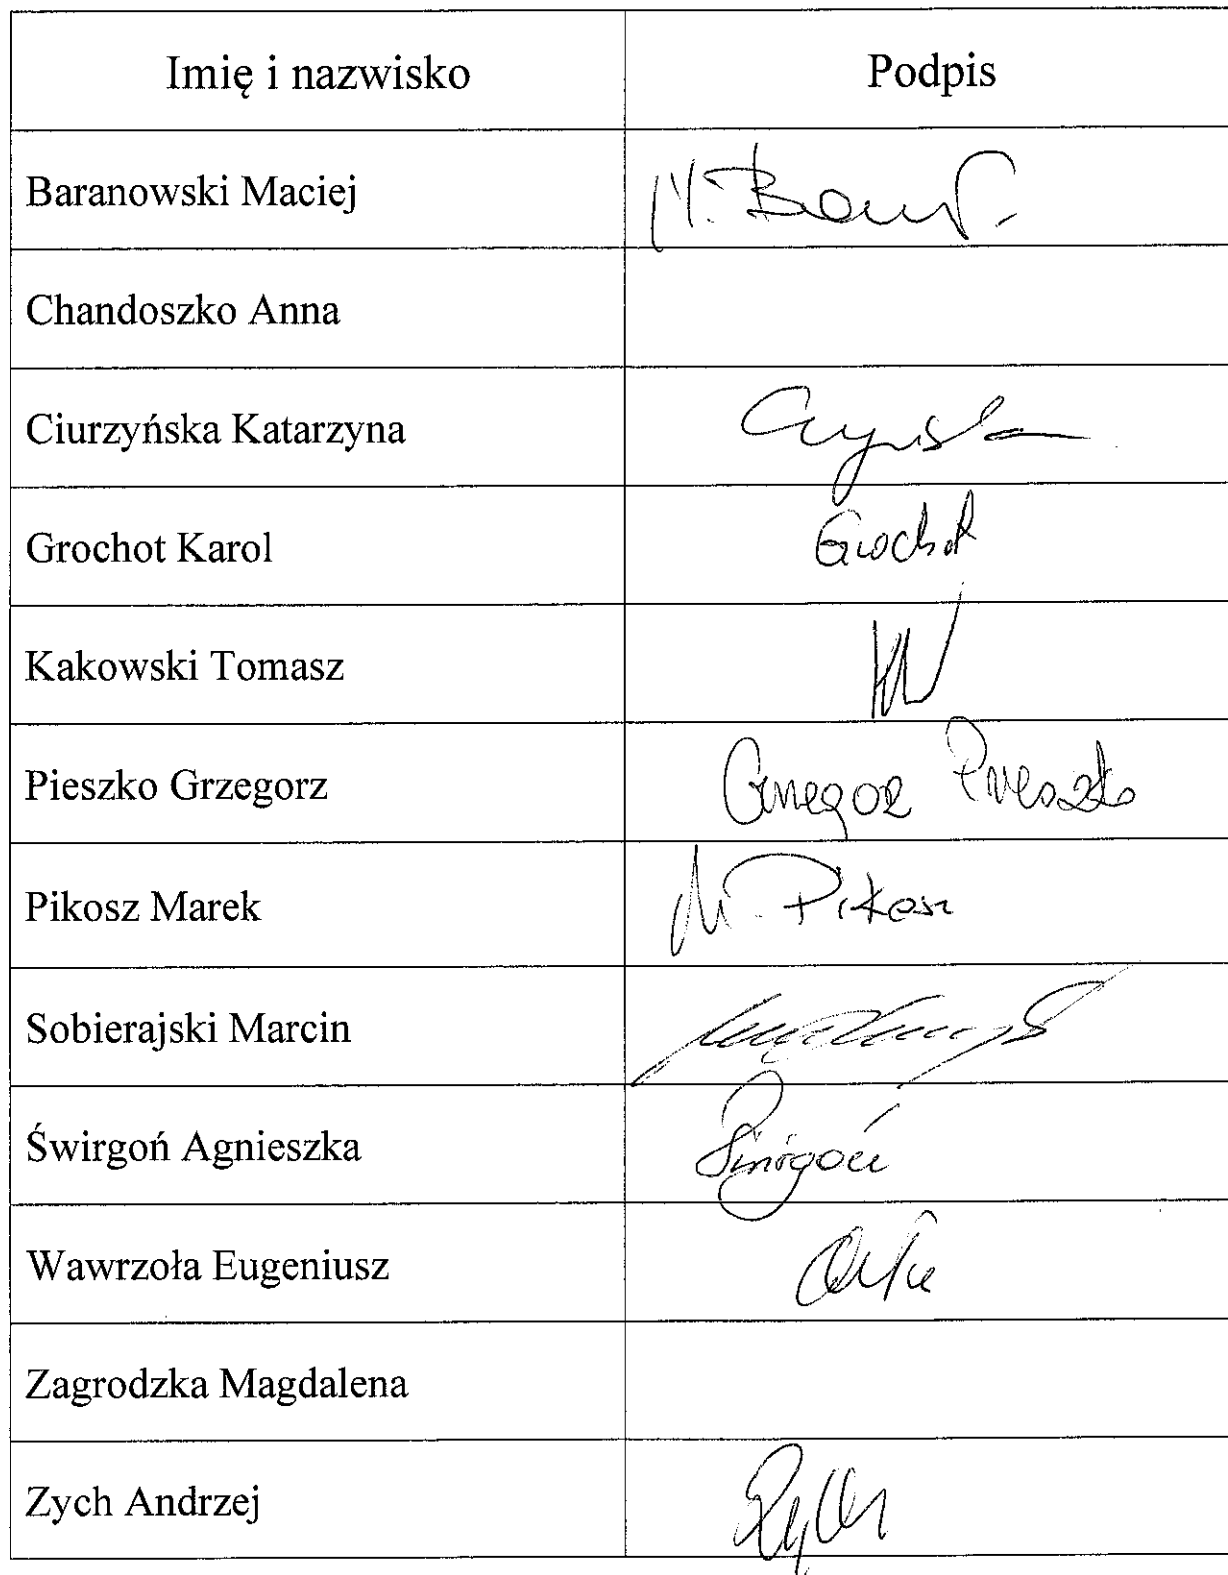 Imię i nazwisko Podpis
Baranowski Maciej M.
Chandoszko Anna
Ciurzyńska Katarzyna
Grochot Karol Grochot
Kakowski Tomasz
Pieszko Grzegorz Grzegorz Pieszko
Pikosz Marek M. Pikosz
Sobierajski Marcin
Świrgoń Agnieszka Świrgoń
Wawrzoła Eugeniusz
Zagrodzka Magdalena
Zych Andrzej